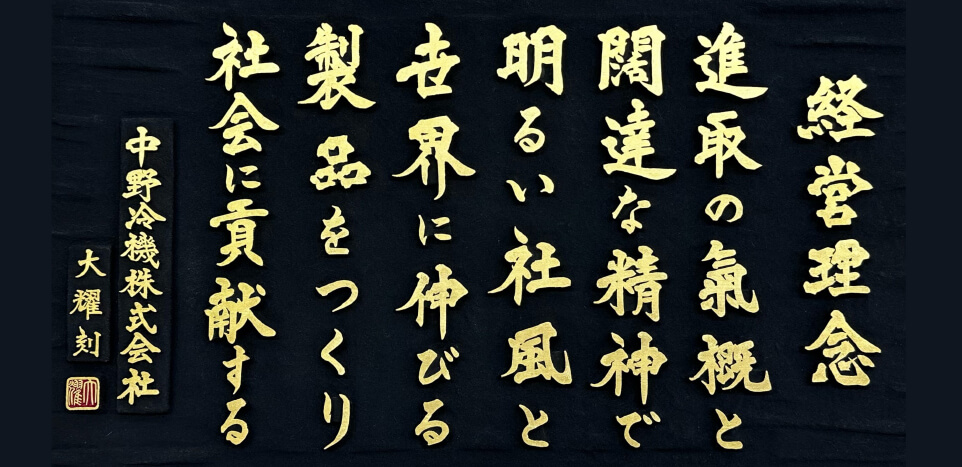 経営理念
進取の氣概と
闊達な精神で
明るい社風と
世界に伸びる
製品をつくり
社会に貢献する
中野冷機株式会社
大耀刻
大耀